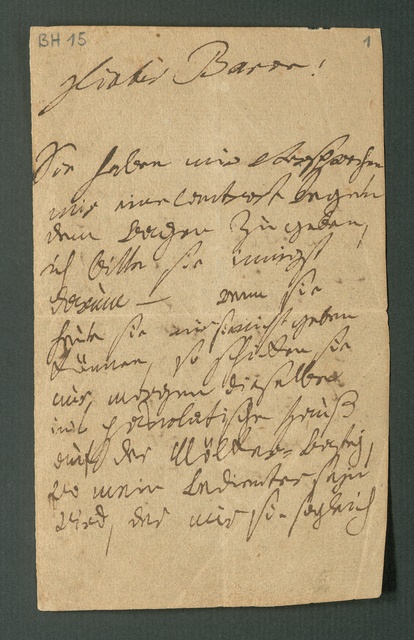 BH 15
1
Lieber Baron!
Sie haben mir versprochen
mir eine wegen
dem zu geben,
ich bitte sie innigst
darum — wenn sie
heute sie mir nicht geben
können, so schicken sie
mir morgen dieselbe
ins pasqualatische Hauß
auf der Mölker-bastey,
wo mein bedienter seyn
wird, der mir sie sogleich